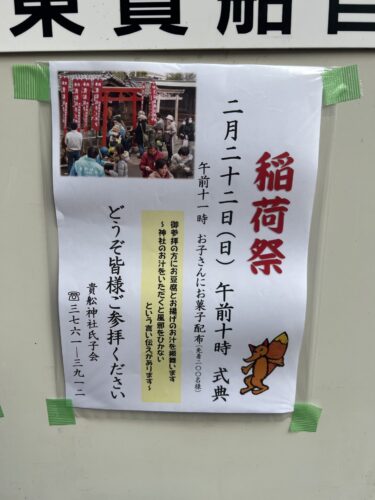 東貫船自
稲荷祭
二月二十二日(日) 午前十時 式典
午前十一時 お子さんにお菓子配布(先着二〇〇名様)
御参拝の方にお豆腐とお揚げのお汁を振舞います
~神社のお汁をいただくと風邪をひかない
という言い伝えがあります~
どうぞ皆様ご参拝ください
貴舩神社氏子会
☏三七六一―三九一二